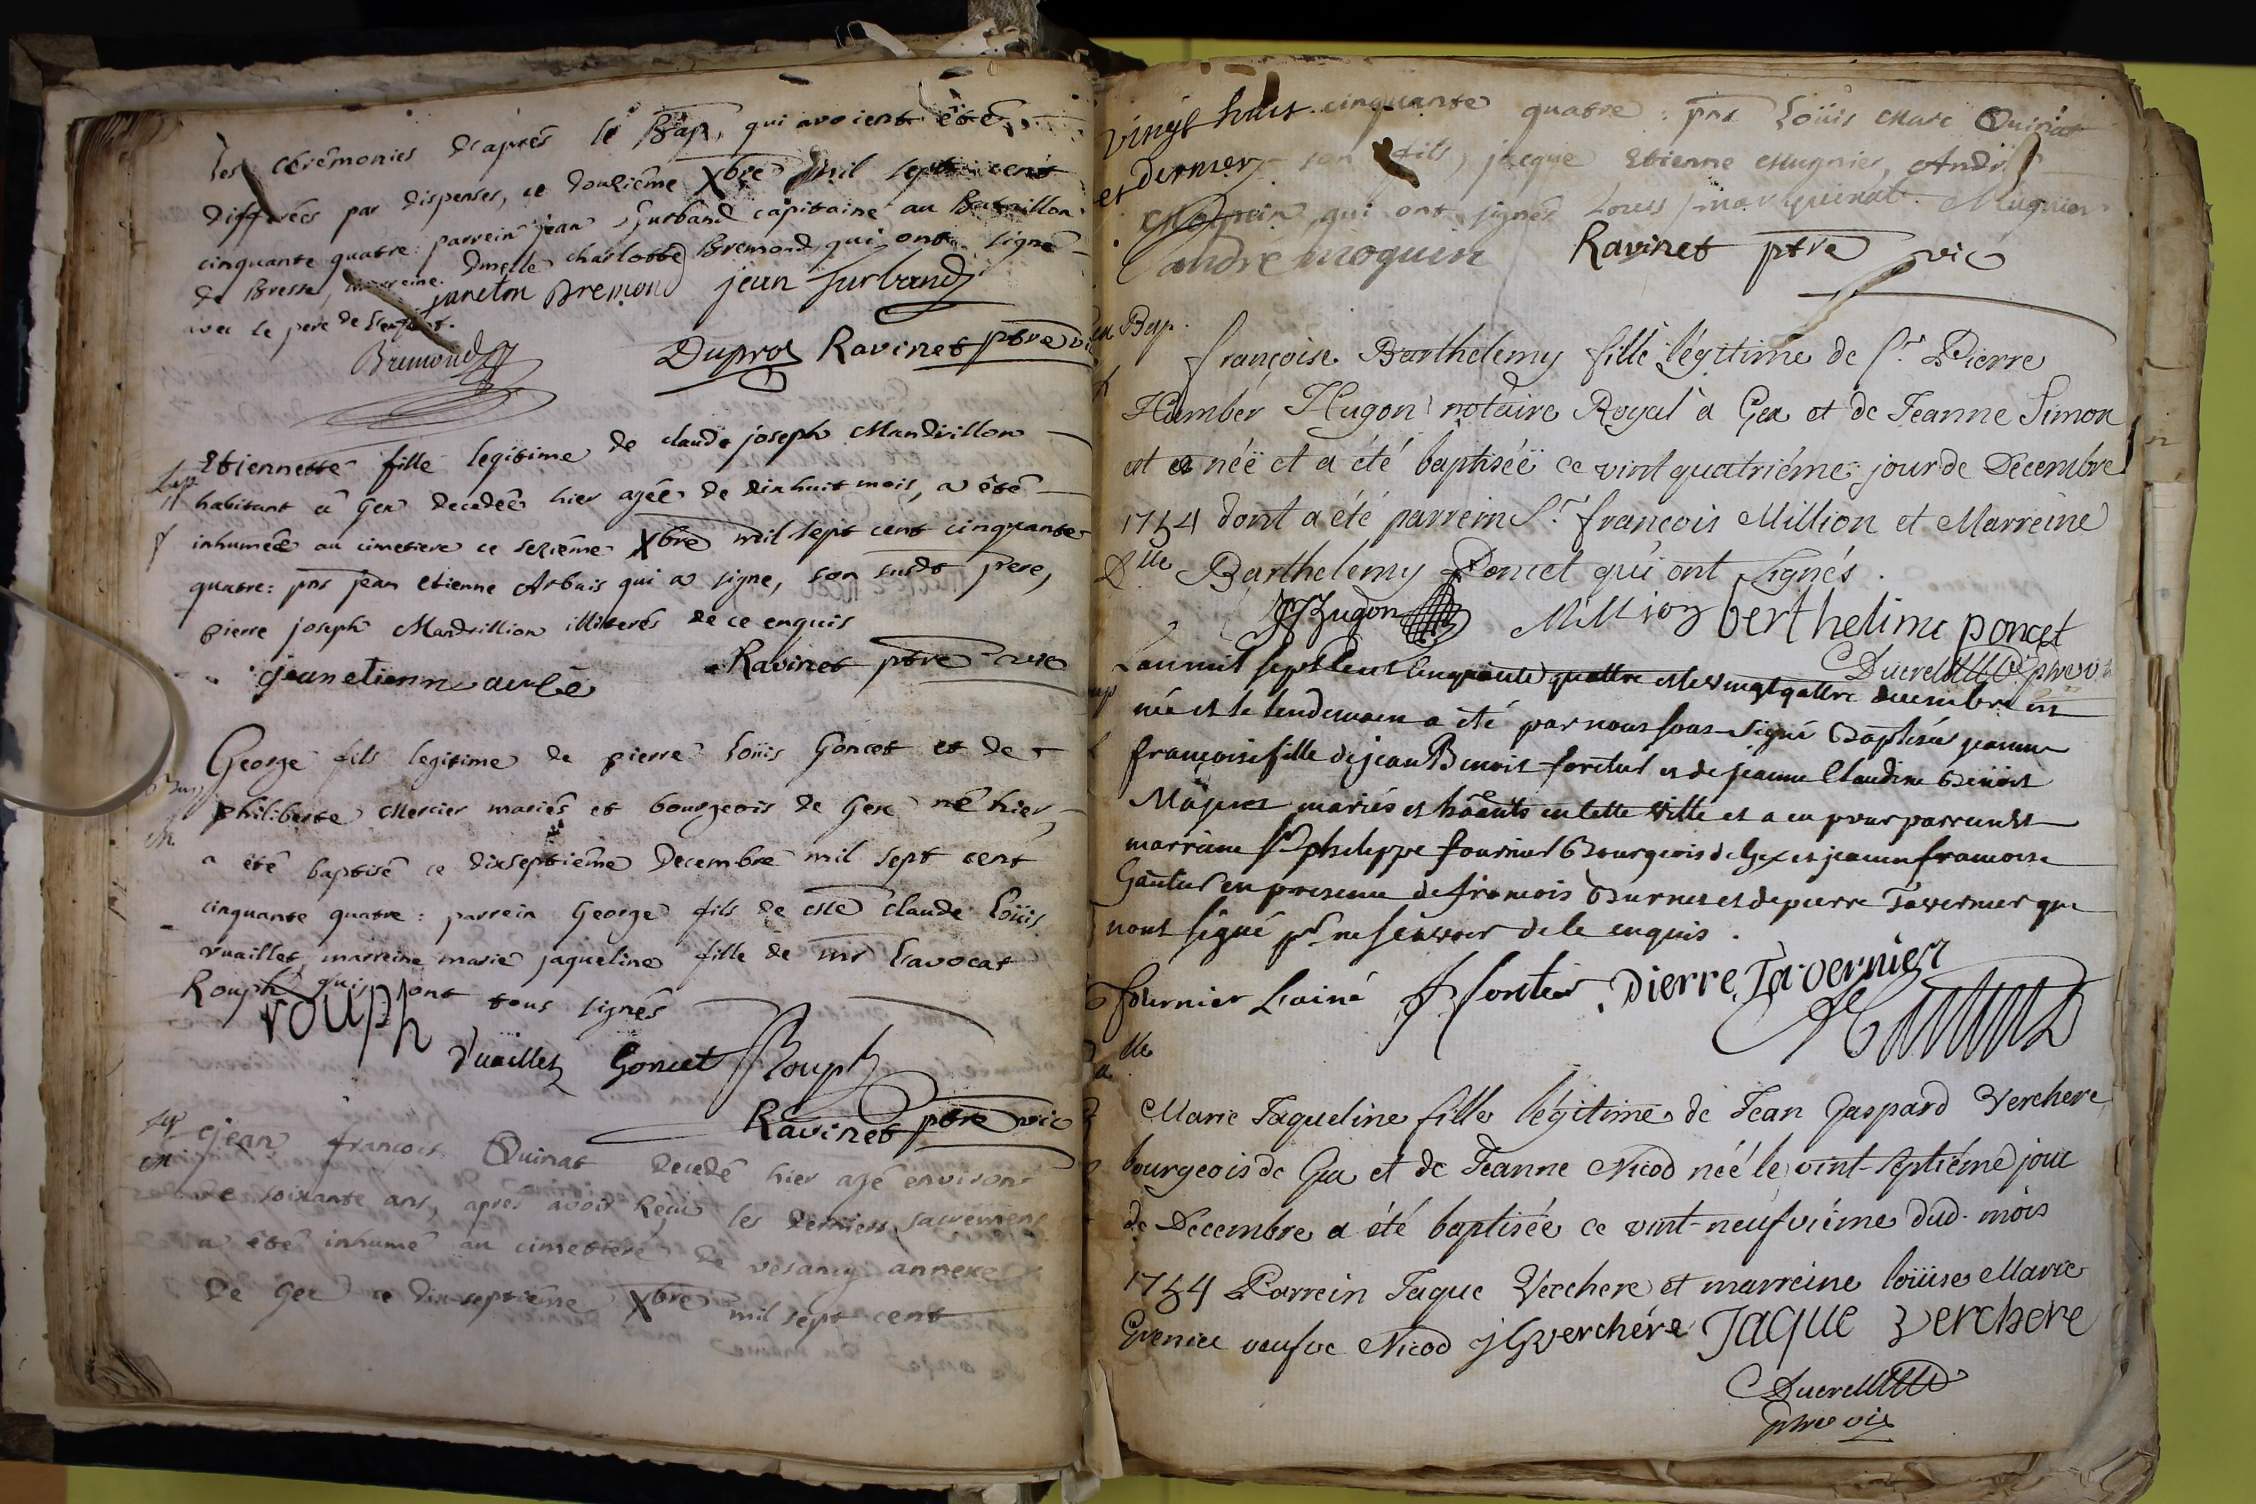 les cérémonies d'après le Bap. qui avoient été
différées par dispenses, ce douzième Xbre mil sept cent
cinquante quatre: parrein jean Surband capitaine au Bataillon
de Bresse, marreine Dmelle charlotte Bremond qui ont signé
avec le pere de l'enfant.
janeton Bremond jean Surband
Bremond Duproz Ravinet ptre vic
Sep
Etiennette fille legitime de claude joseph Mandrillon
habitant à Gex decedée hier agée de dixhuit mois, a été
inhumée au cimetiere ce sezième Xbre mil sept cent cinquante
quatre: pns jean etienne Arbais qui a signe, son susdt frere,
pierre joseph Mandrillion illiterés de ce enquis
jean etienne Ravinet ptre vic
Bap
George fils legitime de pierre Loüis Goncet et de
philiberte Mercier mariés et bourgeois de Gex né hier,
a été baptisé ce dixseptième Decembre mil sept cent
cinquante quatre: parrein George fils de Me Claude Loüis
vuaillet marreine marie jaqueline fille de mr L'avocat
Rouph qui ont tous signés
rouph
Vuaillet Goncet Rouph
Ravinet ptre vic
Sep
jean françois Quinat decedé hier agé environ
de soixante ans, apres avoir reçu les derniers sacremens
a été inhumé au cimetiere de vesancy annexe
de Gex ce dix septième Xbre mil sept cent
vingt huit cinquante quatre: pns Loüis Marc Quinat
et dernier son fils, jacque Etienne Mugnier, André
Moquin qui ont signés Louis marc quinat Mugnier
andré moquin Ravinet ptre vic
Bap.
françoise Barthelemy fille légitime de Sr Pierre
Humber Hugon notaire Royal à Gex et de Jeanne Simon
est néë et a été baptiséë ce vint quatriéme jour de Decembre
1754 dont a été parrein Sr françois Million et Marreine
Dlle Barthelemy Poncet qui ont signés.
Hugon Million berthelime poncet
Ducret ptre vic
L'an mil sept Cent Cinquante quattre et le vingt quattre decembre est
née et le lendemain a été par nous sous-signé Baptisée jeanne
françoise fille de jean Benoit fontul et de jeanne Claudine Benoit
Majnot mariés et hāants en cette ville et a eu pour parrein et
marraine Sr philippe fournier Bourgeois de Gex et jeanne francoise
Gautier en presence de francois Burnet et de pierre Tavernier que
n'ont signé pr ne scavoir de ce enquis.
fournier L'ainé Pierre Tavernier
lle
Marie Jaqueline fille légitime de Jean Gaspard Verchere
bourgeois de Gex et de Jeanne Nicod née le vint-septiéme jour
de Decembre a été baptisée ce vint-neufviéme dud. mois
1754 Parrein Jaque Verchere et marreine loüise Marie
veufve Nicod JGverchére Jaque Verchere
Ducret
ptre vic